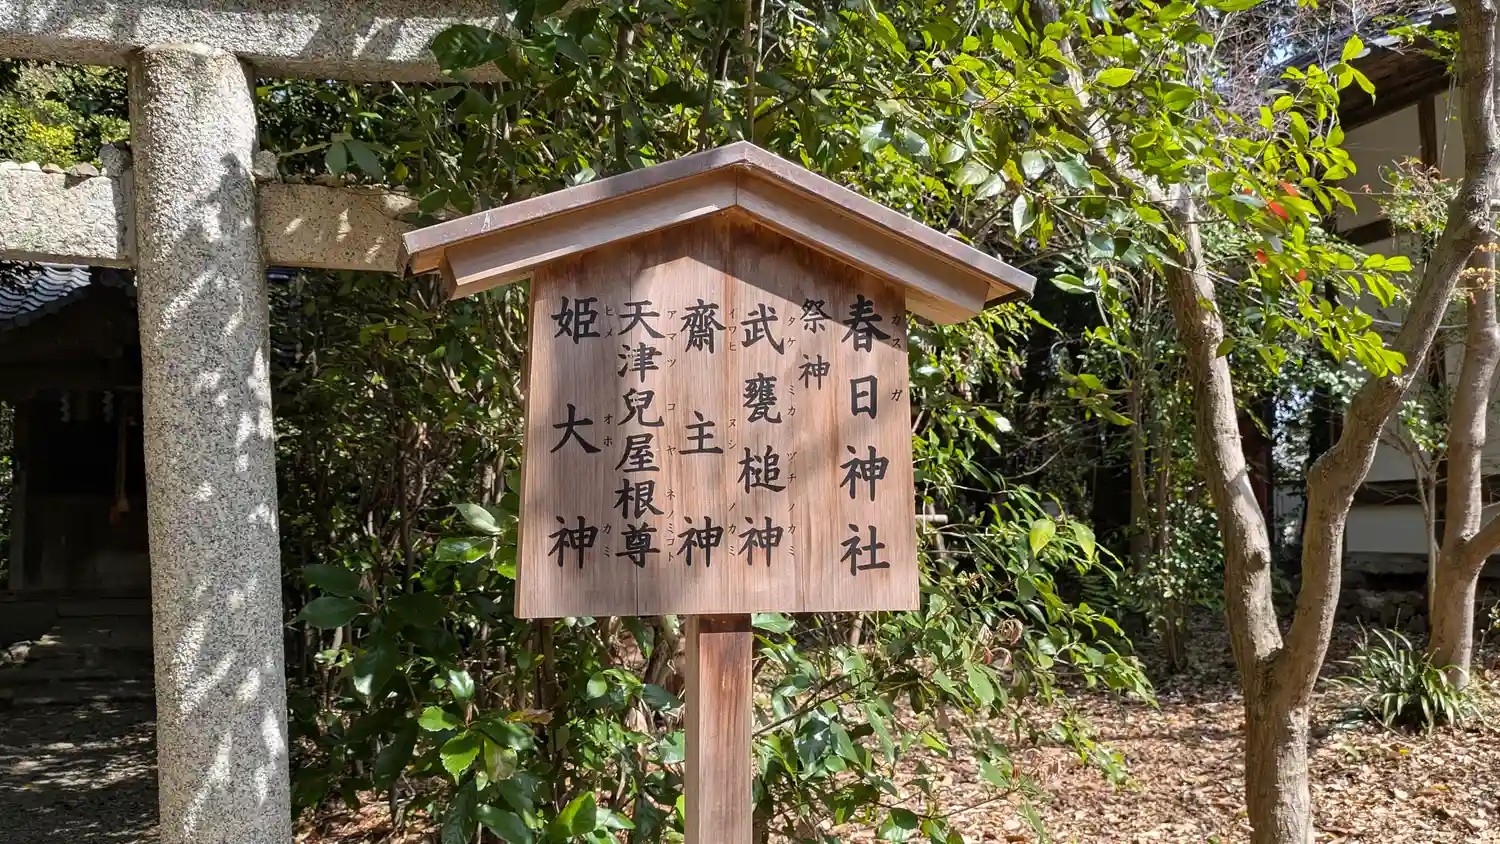 春日神社
カスガ
祭神
武甕槌神
タケミカヅチノカミ
齋主神
イワヒヌシノカミ
天津兒屋根尊
アマツコヤネノミコト
姫大神
ヒメオホカミ